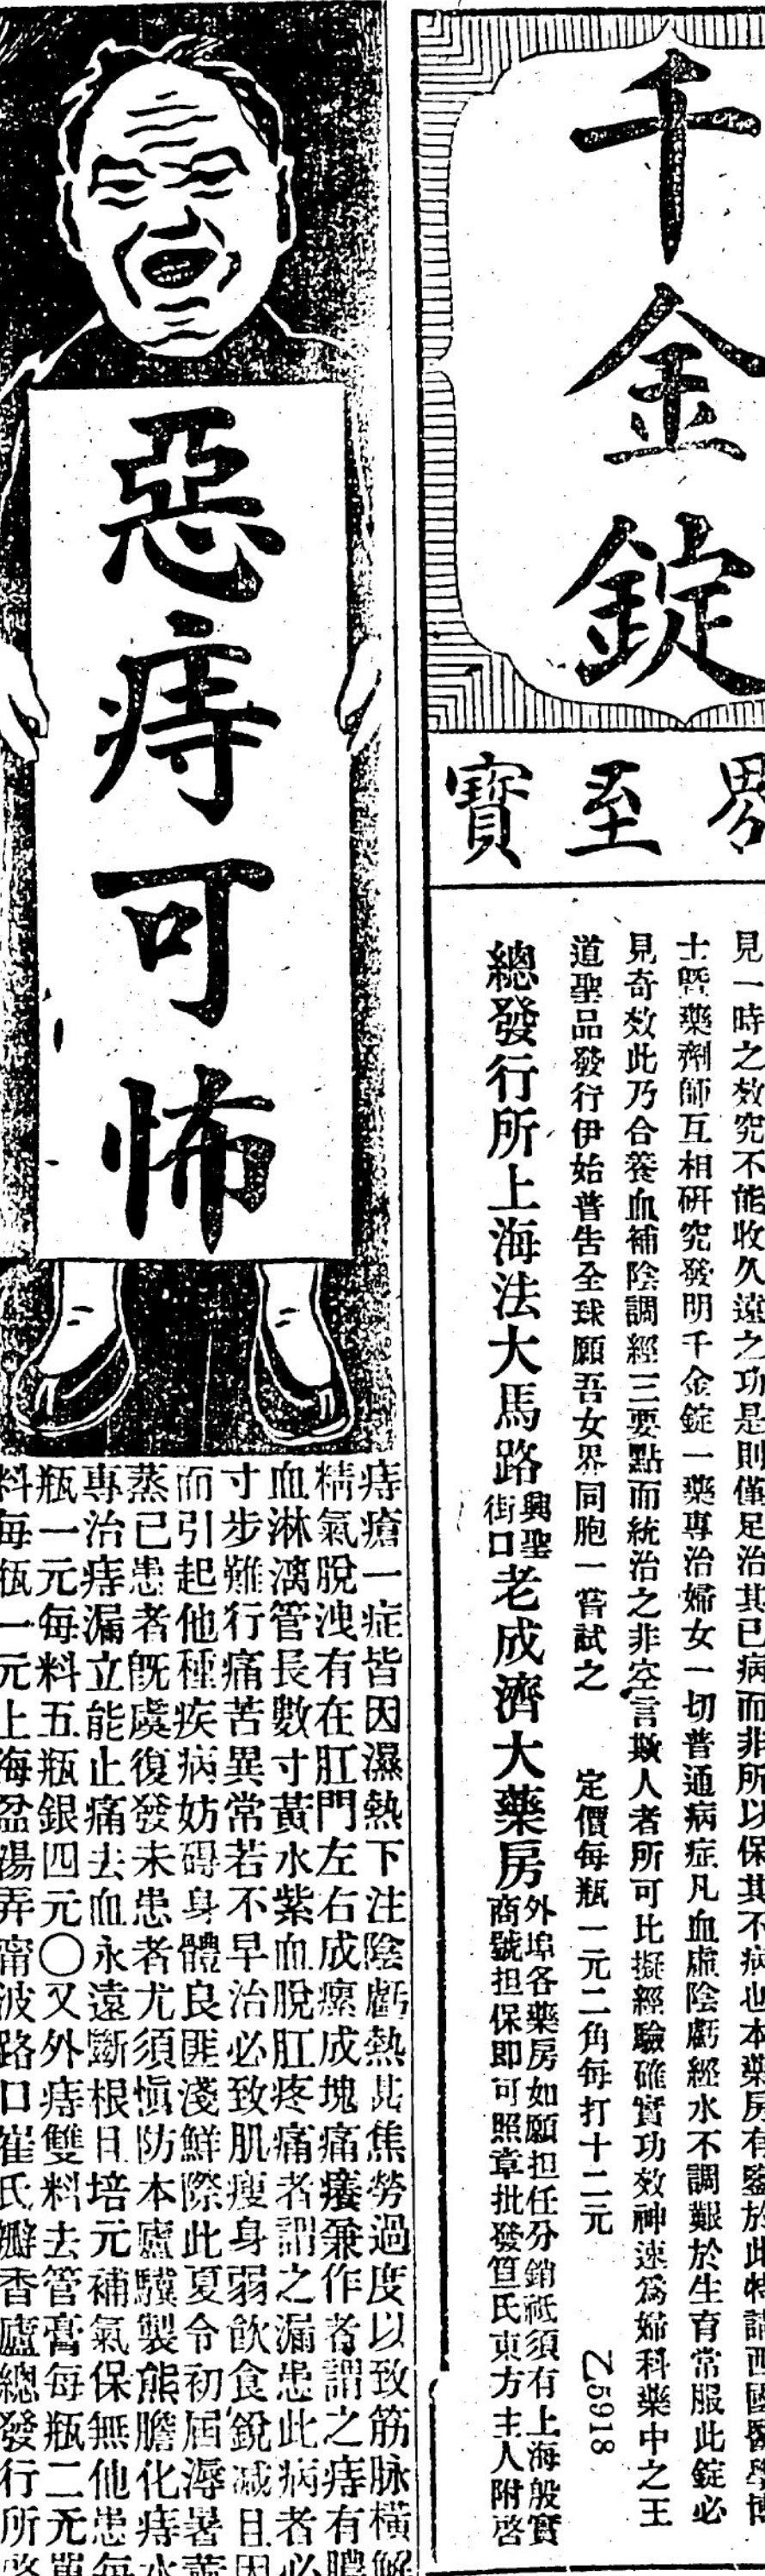 千金錠
界至寶
見一時之效究不能收久遠之功是則僅足治其已病而非所以保其不病也本藥房有鑒於此特請西國醫學博
士暨藥劑師互相研究發明千金錠一藥專治婦女一切普通病症凡血虛陰虧經水不調艱於生育常服此錠必
見奇效此乃合養血補陰調經三要點而統治之非空言欺人者所可比擬經驗確實功效神速爲婦科藥中之王
道聖品發行伊始普告全球願吾女界同胞一嘗試之 定價每瓶一元二角每打十二元 乙5918
總發行所上海法大馬路興聖街口老成濟大藥房外埠各藥房如願担任分銷祗須有上海殷實商號担保即可照章批發笪氏東方主人附啓
惡痔可怖
痔瘡一症皆因濕熱下注陰虧熱甚焦勞過度以致筋脉橫解
精氣脫洩有在肛門左右成瘰成塊痛癢兼作者謂之痔有膿
血淋漓管長數寸黃水紫血脫肛疼痛者謂之漏患此病者必
寸步難行痛苦異常若不早治必致肌瘦身弱飲食銳減且因
而引起他種疾病妨碍身體良匪淺鮮際此夏令初屆溽暑薰
蒸已患者旣虞復發未患者尤須愼防本廬驥製熊膽化痔水
專治痔漏立能止痛去血永遠斷根且培元補氣保無他患每
瓶一元每料五瓶銀四元〇又外痔雙料去管膏每瓶二元單
料每瓶一元上海盆湯弄甯波路口崔氏瓣香廬總發行所